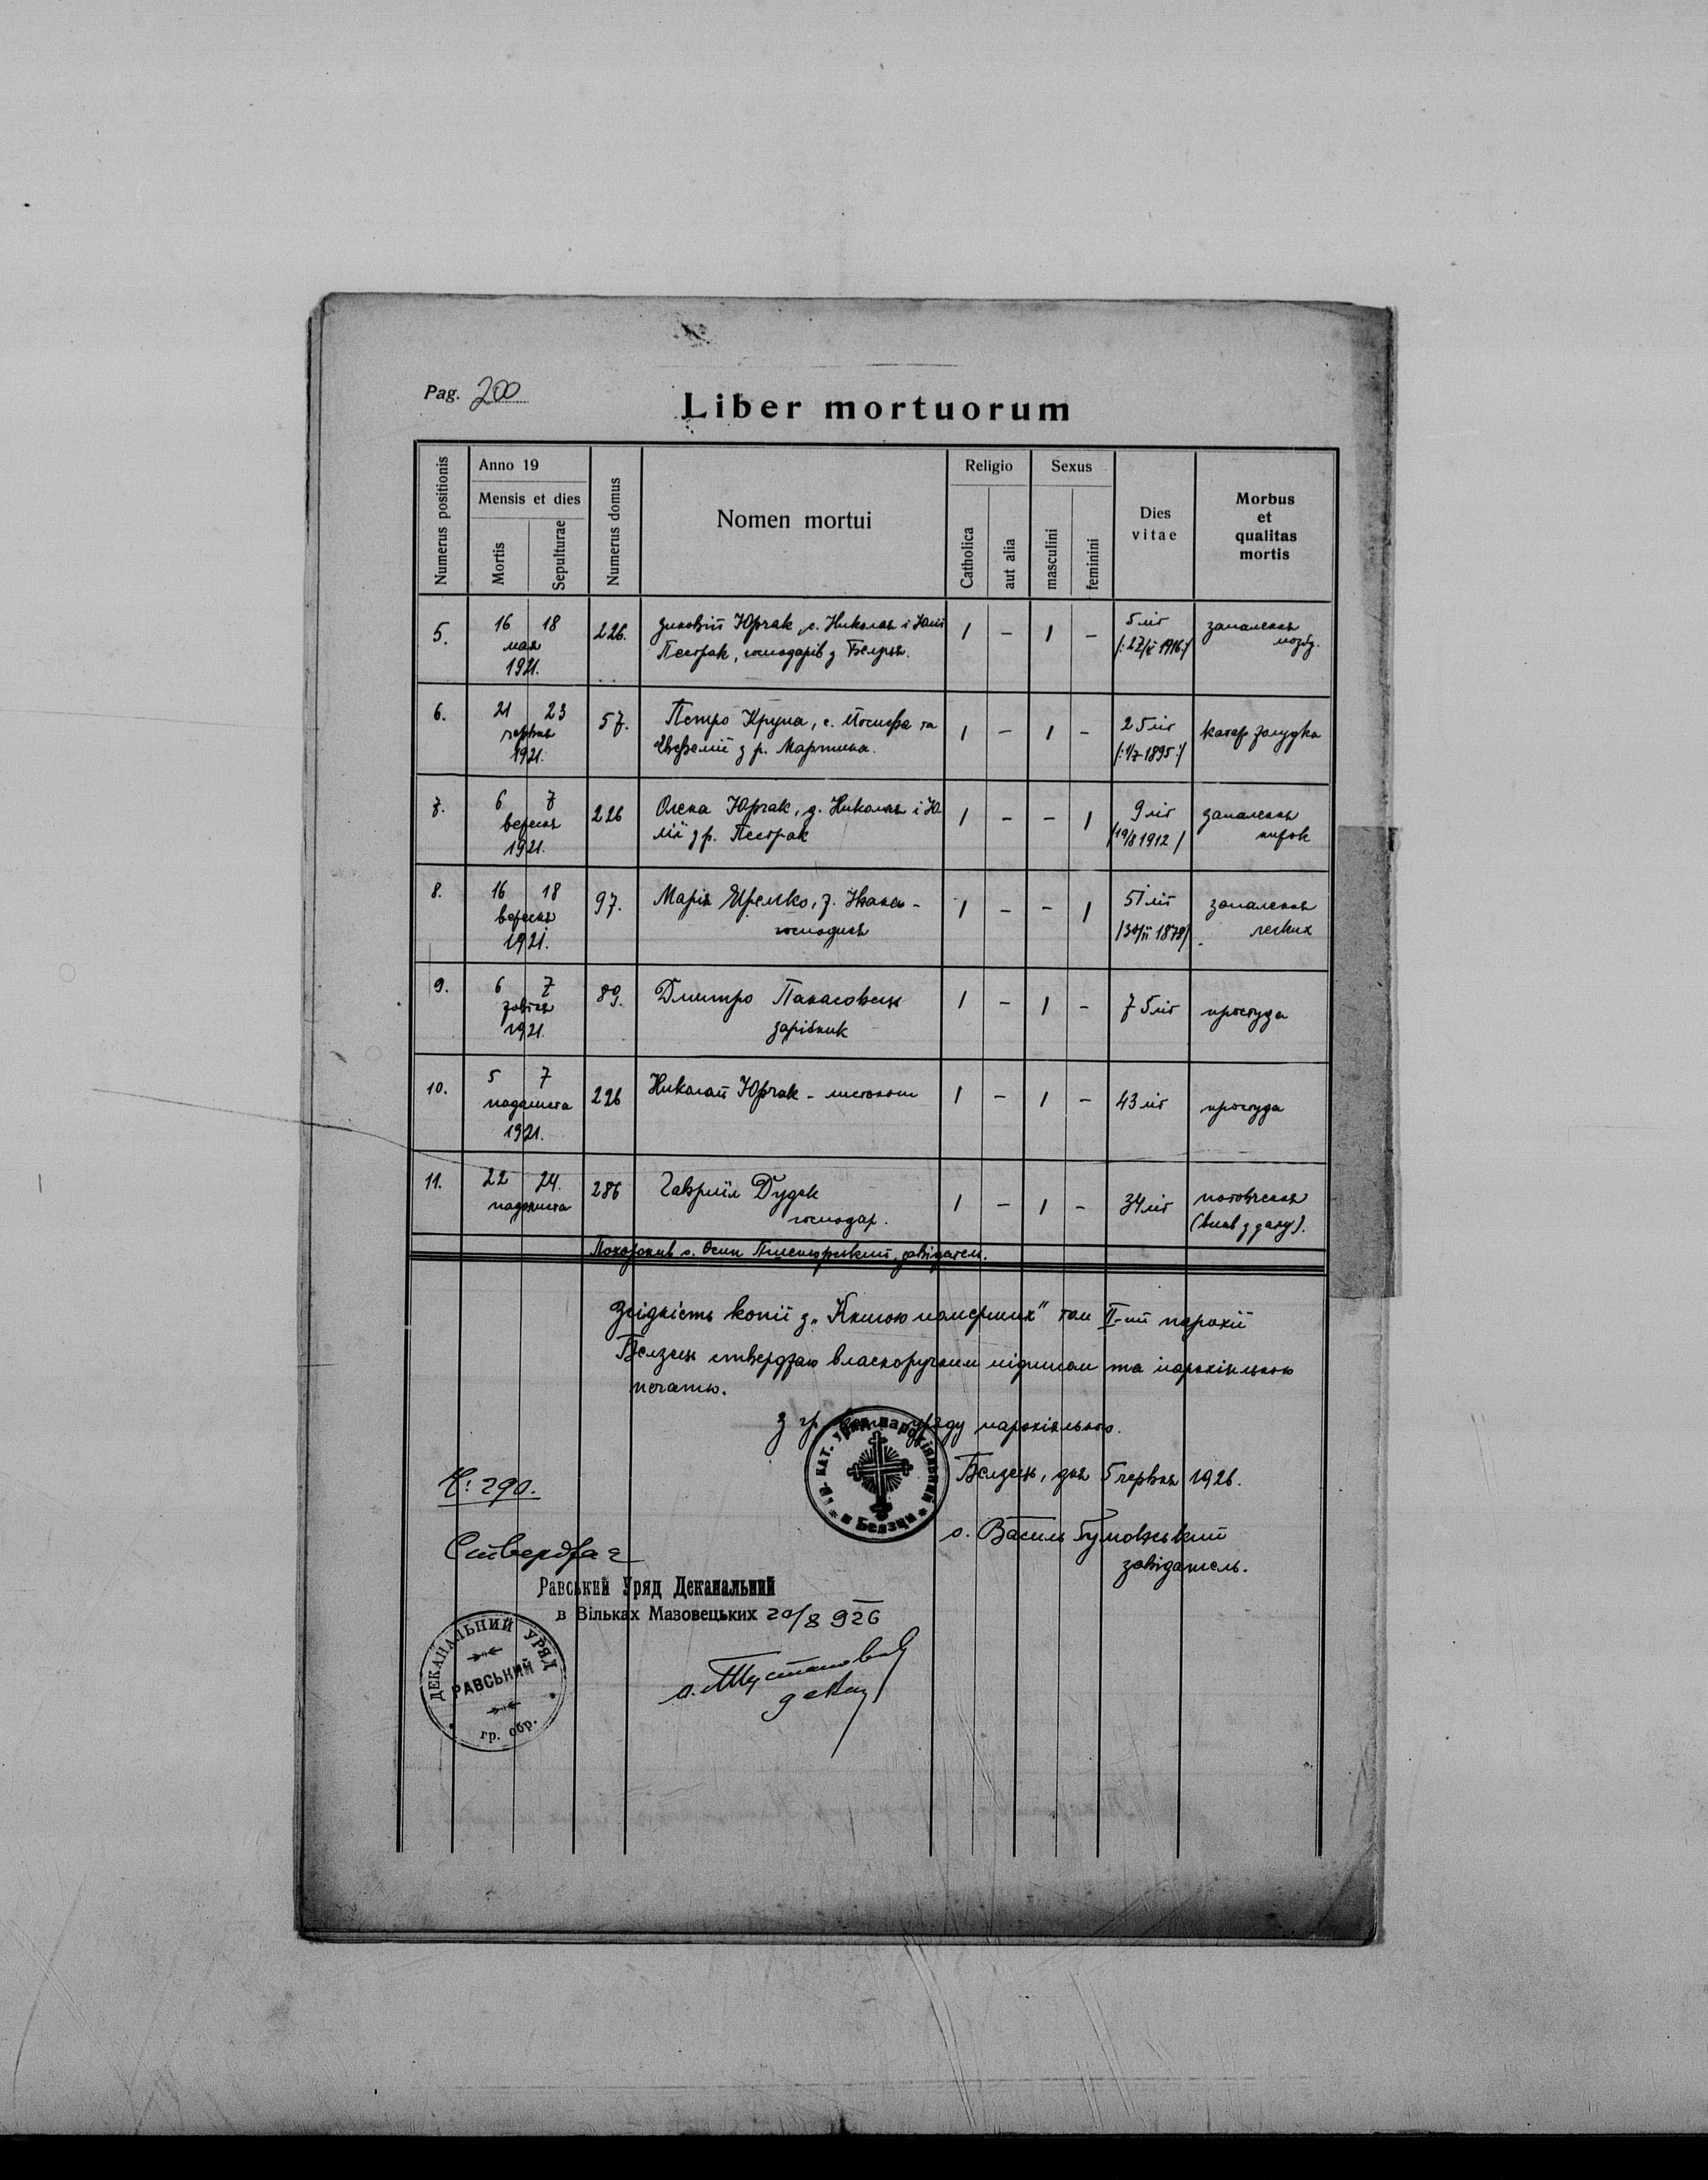 Pag. 200
Liber mortuorum
Numerus positionis
Anno 19
Mensis et dies
Mortis
Sepulturae
Numerus domus
Nomen mortui
Religio
Catholica
aut alia
Sexus
masculini
feminini
Dies
vitae
Morbus
et
qualitas
mortis
5. 16 18 226. Юрчак, с. Николая і Юлії 1 - 1 - 5 літ запалення
мая Пестрак, господарів з /: 27/X 1916 :/ мозґу.
1921.
6. 21 23 57. Петро Крупа, с. Йосифа та 1 - 1 - 25 літ катар жолудка
червня Евфемії з р. Мартина. /: 1/7 1895 :/
1921.
7. 6 7 226 Олена Юрчак, д. Николая і Ю 1 - - 1 9 літ запалення
вересня лії з р. Пестрак /19/8 1912/ нирок
1921.
8. 16 18 97. Марія Яремко, ж. Івана - 1 - - 1 51 літ запалення
вересня господиня /30/II 1870/ легких
1921.
9. 6 7 89. Дмитро Панасовець 1 - 1 - 75 літ простуда
жовтня зарібник
1921.
10. 5 7 226 Николай Юрчак - листонош 1 - 1 - 43 літ простуда
падолиста
1921.
11. 22 24. 286 Гавриїл Дудок 1 - 1 - 34 літ потовчення
падолиста господар. (впав з даху).
Похоронив о. Осип завідатель.
Згідність копії з „Книгою померших" том II-ий парохії
Белзець стверджаю власноручним підписом та парохіяльною
печатю.
З гр. уряду парохіяльного.
Гр. кат. уряд парохіяльний
в Белзци
Белзець, дня 5 червня 1926.
Ч: 290.
о. Василь Бумовський
завідатель.
Стверджає
Равський Уряд Деканальний
в Вільках Мазовецьких 20/8 926
ДЕКАНАЛЬНИЙ УРЯД
РАВСЬКИЙ
гр. обр.
декан